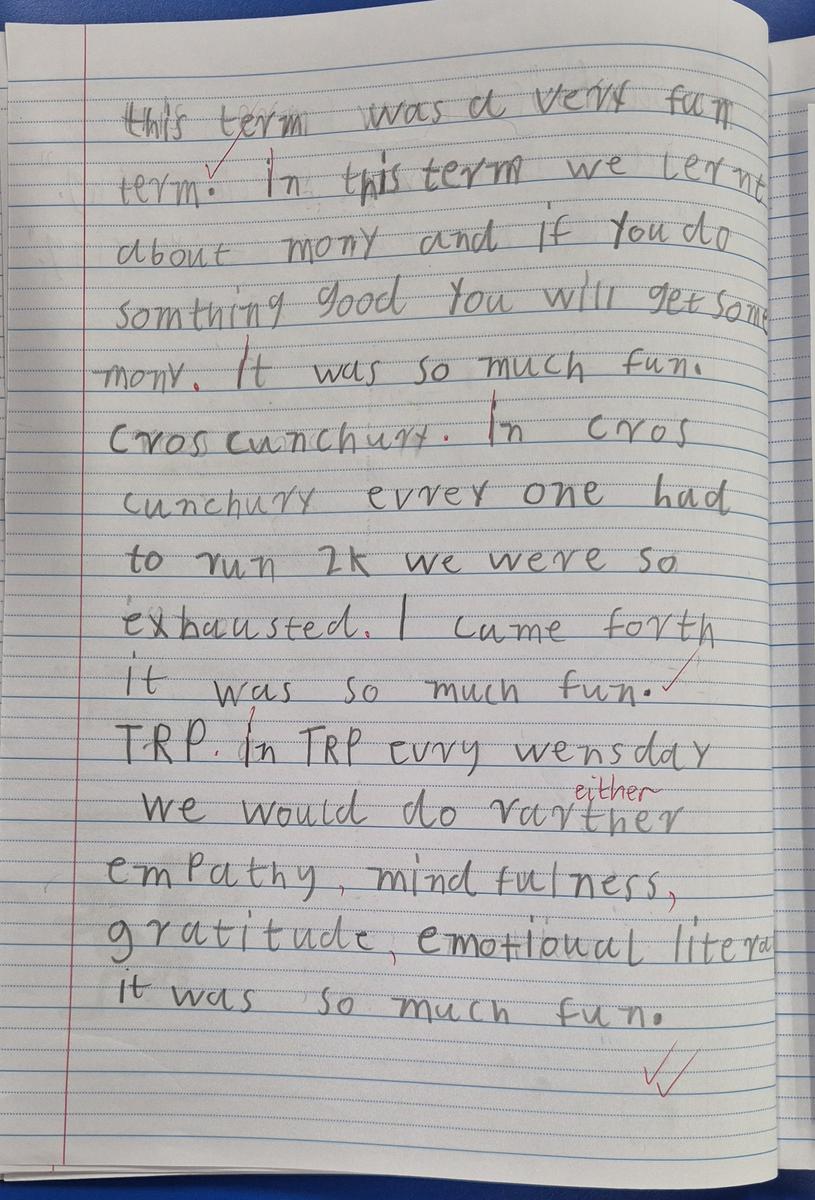 this term was a very fun
term. In this term we lernt
about mony and if you do
somthing good you will get some
mony. It was so much fun.
Cros cunchury. In cros
cunchury evrey one had
to run 2k we were so
exhausted. I came forth
it was so much fun.
TRP. In TRP evry wensday
either
we would do rarther
empathy, mindfulness,
gratitude, emotional litera
it was so much fun.